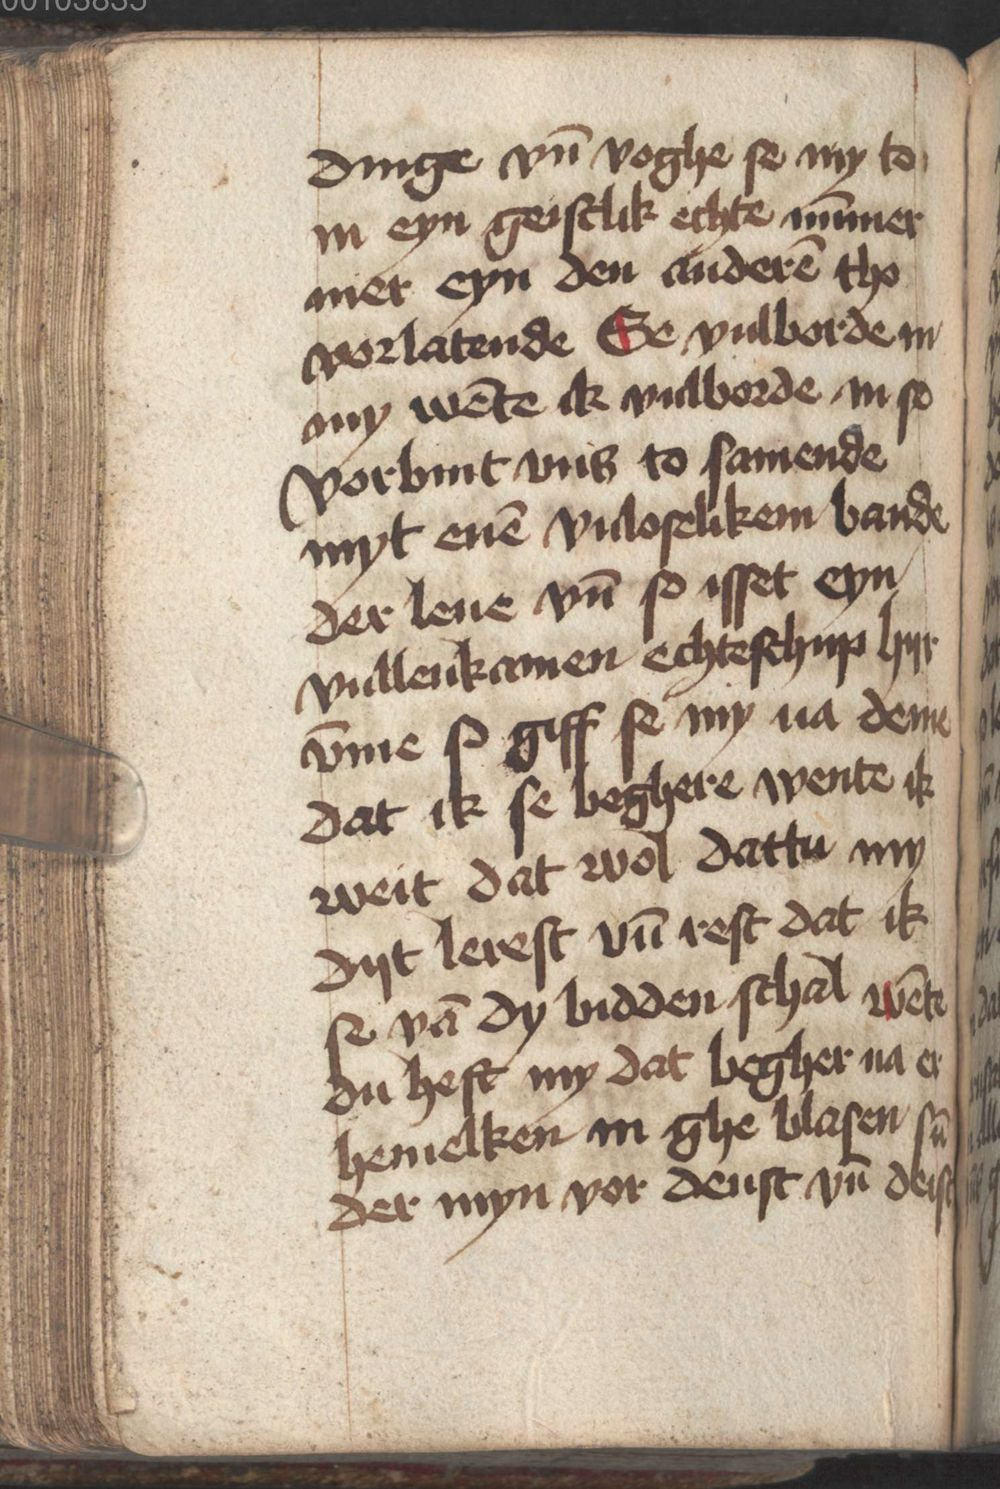 00103835
dinge vn̄ voghe se my to
in eyn geistlik echte nūmer
mer eyn den anderē tho
vorlatende Se vulborde in
my wēte ik vulborde in so
vorbint vns to samende
myt enē vuloselikem bande
der leue vn̄ so isset eyn
vullenkamen echteschup hyr
v̄me so giff se my na deme
dat ik se beghere wente ik
weit dat wol dattu my
dyt lerest vn̄ rest dat ik
se vā dy bidden schal wēte
du heft my dat begher na er
hemelken in ghe blasen sū
der myn vor denst vn̄ deist